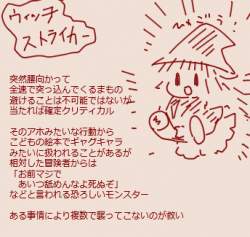 ウィッチ
ストライカー
びゅごう
突然腰向かって
全速で突っ込んでくるまもの
避けることは不可能ではないが
当たれば確定クリティカル
そのアホみたいな行動から
こどもの絵本でギャグキャラ
みたいに扱われることがあるが
相対した冒険者からは
「お前マジで
あいつ舐めんなよ死ぬぞ」
などと言われる恐ろしいモンスター
ある事情により複数で襲ってこないのが救い